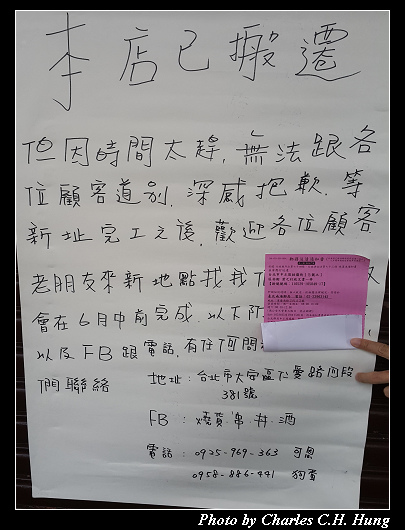 本店已搬遷
但因時間太趕，無法跟各
位顧客道別，深感抱歉，等
新址完工之後，歡迎各位顧客
老朋友來新地點找我
會在6月中前完成，以下
以及FB跟電話，有任何問
們聯絡
地址：台北市大安區仁愛路四段
381號
FB：燒賣.串.丼.酒
電話：0925-969-363 可恩
0958-886-441 狗蛋
Photo by Charles C.H. Hung